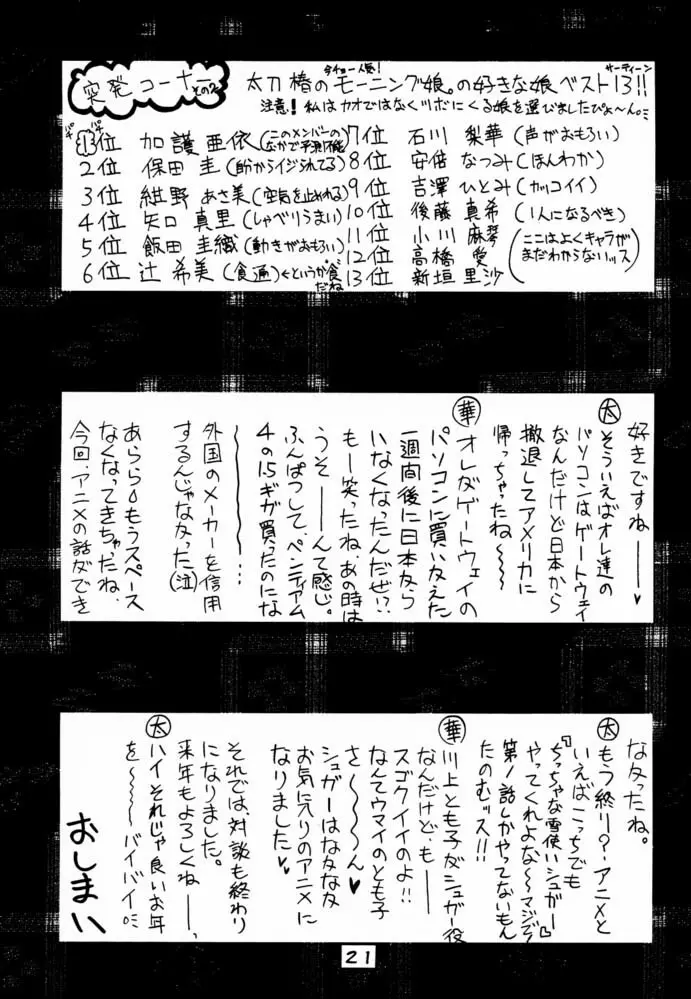 突発コーナー その2
今チョー人気!
太刀椿のモーニング娘。の好きな娘ベスト13!!
サーティーン
注意!私はカオではなくツボにくる娘を選びましたぴょ〜ん。
1位 加護亜依(このメンバーのなかで予測不能)
2位 保田 圭(助からイジられてる)
3位 紺野 あさ美(空気を止めれる)
4位 矢口 真里(しゃべりうまい)
5位 飯田 圭織(動きがおもろい)
6位 辻 希美(食遍)←というか食だね
7位 石川 梨華(声がおもろい)
8位 安倍 なつみ(ほんわか)
9位 吉澤 ひとみ(カッコイイ)
10位 後藤 真希(1人になるべき)
11位 小川 麻琴
12位 高橋 愛
13位 新垣 里沙
(ここはよくキャラがまだわからないッス)
好きですね──♥
太 そういえばオレ達の
パソコンはゲートウェイ
なんだけど日本から
撤退してアメリカに
帰っちゃったね〜〜
華 オレがゲートウェイの
パソコンに買い変えた
一週間後に日本から
いなくなったんだぜ!?
もー笑ったね、あの時は
うそ──んて感じ。
ふんぱつして、ペンティアム
4の1.5ギガ買ったのにな
〜〜〜〜〜…
外国のメーカーを信用
するんじゃなかった(泣)
あらら もうスペース
なくなってきちゃったね、
今回、アニメの話ができ
なかったね。
太 もう終り?アニメと
いえばこっちでも
『ちっちゃな雪使いシュガー』
やってくれよな〜〜マジで
第1話しかやってないもん
たのむッス!!
華 川上とも子がシュガー役
なんだけども──
スゴクイイのよ!!
なんてウマイのとも子
さ〜〜〜ん♥
シュガーはなかなか
お気に入りのアニメに
なりました♥♥
それでは、対談も終わり
になりました。
来年もよろしくね──、
太 ハイそれじゃ良いお年
を〜〜〜〜バイバイ
おしまい
21